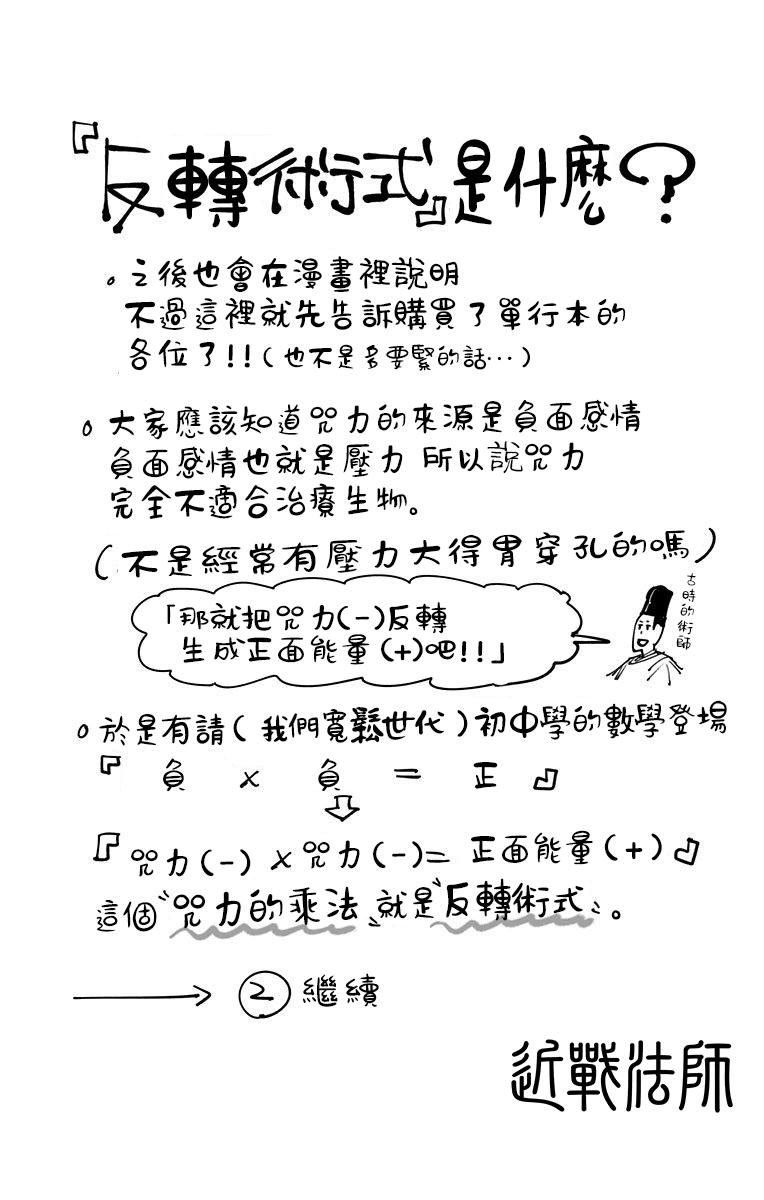 『反轉術式』是什麼?
。之後也會在漫畫裡說明
不過這裡就先告訴購買了單行本的
各位了!!(也不是多要緊的話…)
。大家應該知道咒力的來源是負面感情
負面感情也就是壓力 所以說咒力
完全不適合治療生物。
(不是經常有壓力大得胃穿孔的嗎)
古時的術師
「那就把咒力(-)反轉
生成正面能量(+)吧!!」
。於是有請(我們寬鬆世代)初中學的數學登場
『 負 x 負 = 正 』
⇩
『咒力(-)x咒力(-)= 正面能量(+)』
這個〝咒力的乘法〞就是〝反轉術式〞。
→ ② 繼續
近戰法師